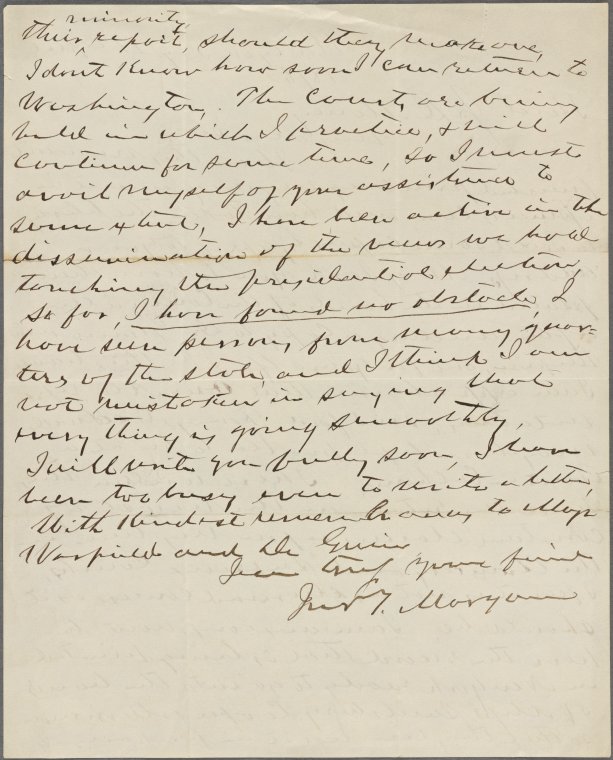 minority
their report, should they make one,
I don't know how soon I can return to
Washington. The Courts are being
held in which I practice, & will
continue for some time, so I must
avail myself of your assistance to
some extent, I have been active in the
dissemination of the views we hold
touching the presidential election,
So far, I have found no obstacle, I
have seen persons from many quar-
ters of the State, and I think I am
not mistaken in saying that
every thing is going smoothly,
I will write you fully soon, I have
been too busy even to write a letter,
With kindest remembrances to Majr
Warfield and Dr
Your friend
Jno. T. Morgan